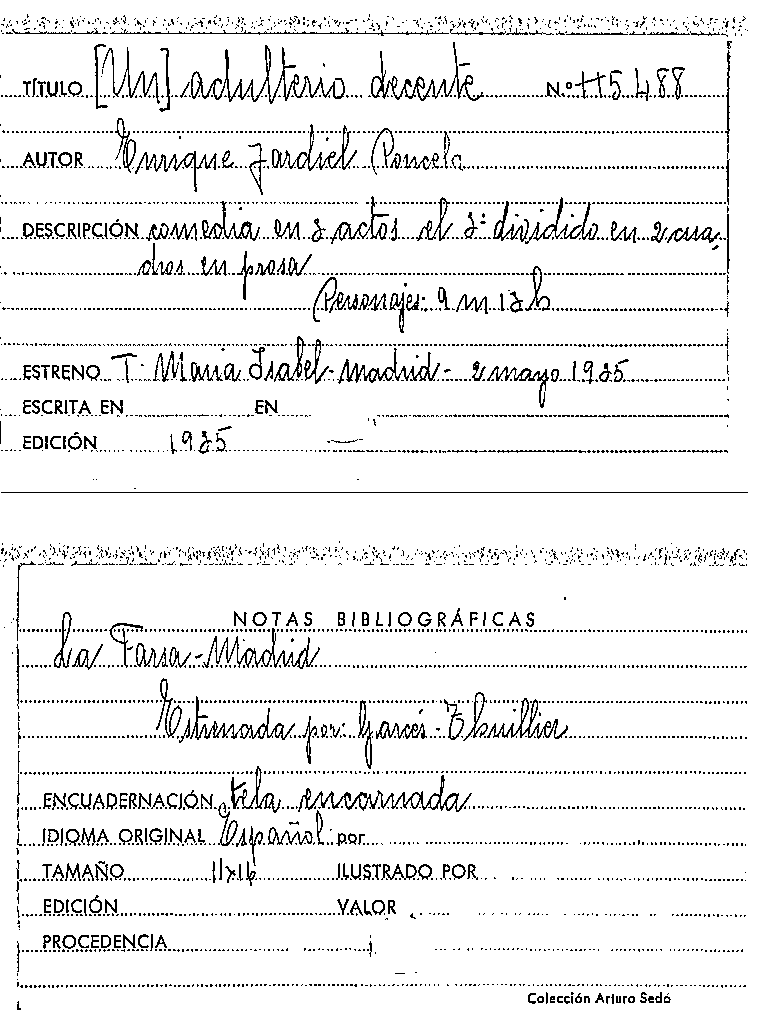 TÍTULO [Un] adulterio decente N.º H5488
AUTOR Enrique Jardiel Poncela
DESCRIPCIÓN comedia en 3 actos el 3º dividido en 2 cua-
dros en prosa
Personajes: 9 m 13 h
ESTRENO T. Maria Isabel - Madrid - 2 mayo 1935
ESCRITA EN EN
EDICIÓN 1935 —
NOTAS BIBLIOGRÁFICAS
La Farsa - Madrid
Estrenada por: Garcés - Thuillier
ENCUADERNACIÓN tela encarnada
IDIOMA ORIGINAL Español por
TAMAÑO 11x16 ILUSTRADO POR
EDICIÓN VALOR
PROCEDENCIA
Colección Arturo Sedó